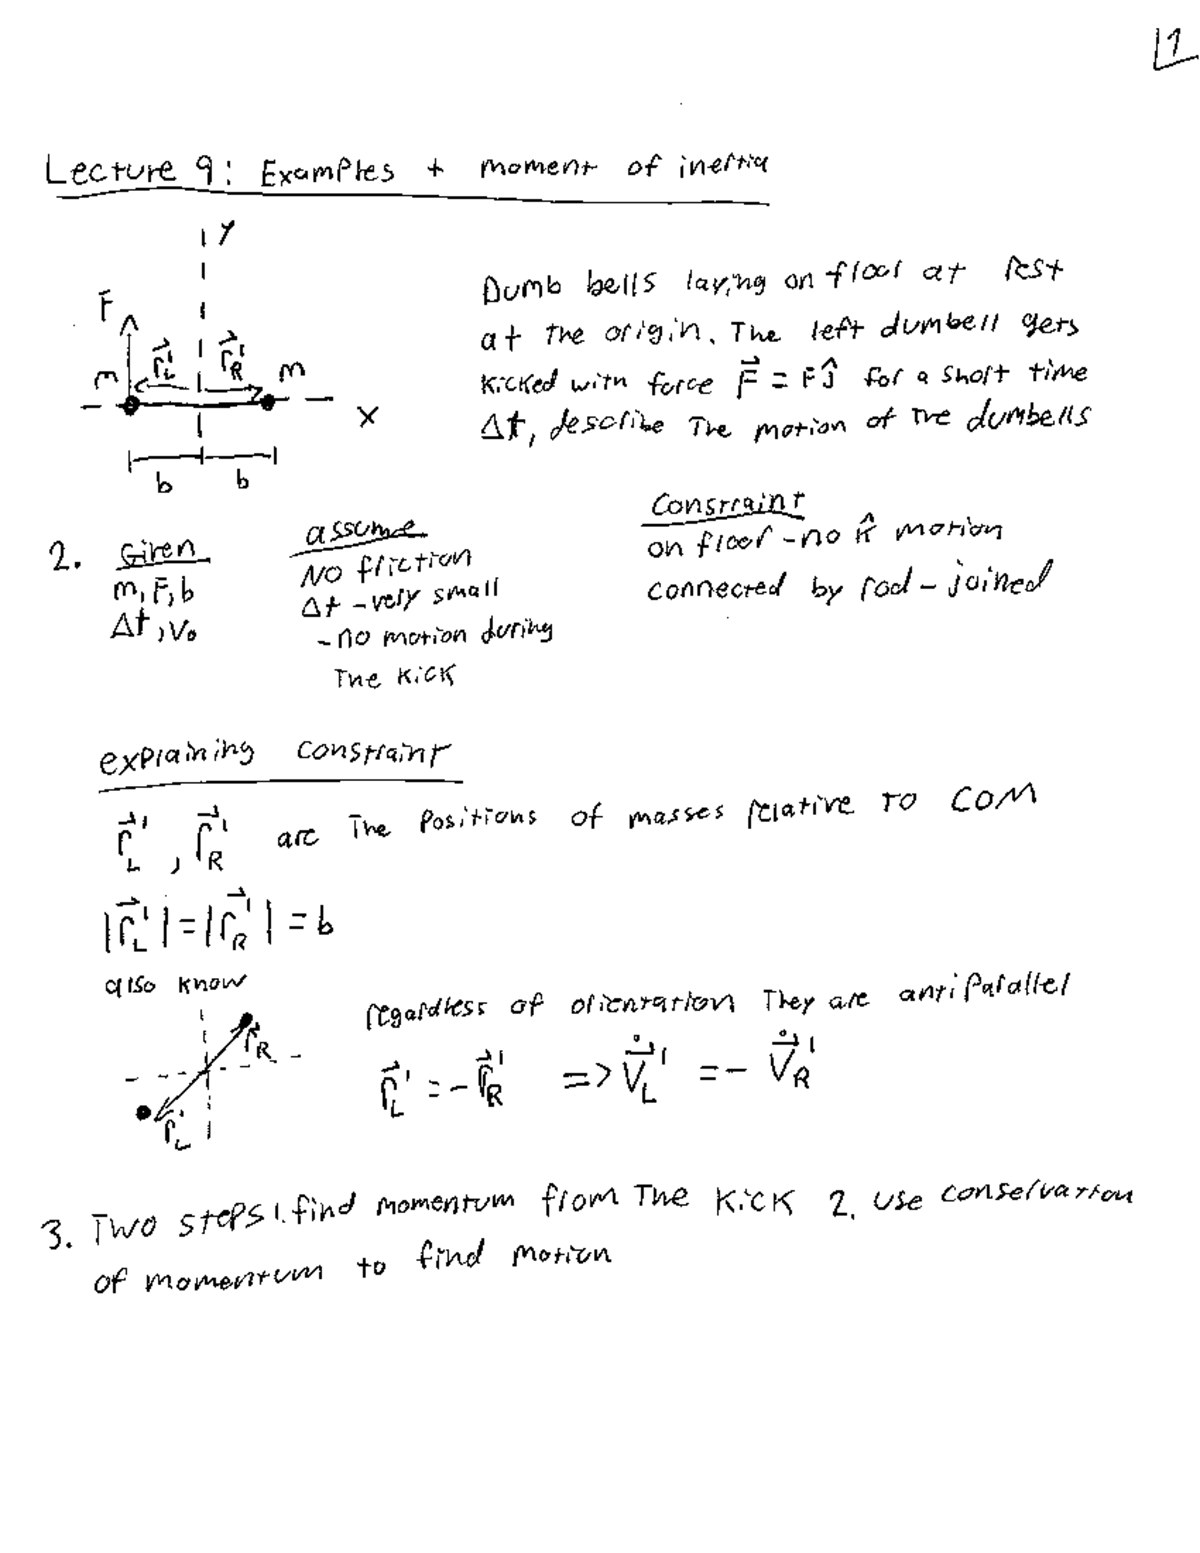 1
Lecture 9: Examples + moment of inertia
y
F
r⃗'L r⃗'R
m m
x
b b
Dumb bells laying on floor at rest
at the origin. The left dumbell gets
kicked with force F⃗ = Fĵ for a short time
Δt, describe the motion of the dumbells
2. Given
m, F, b
Δt, v₀
assume
No friction
Δt - very small
- no motion during
the kick
Constraint
on floor - no k̂ motion
connected by rod - joined
explaining constraint
r⃗'L, r⃗'R are the positions of masses relative to COM
|r⃗'L| = |r⃗'R| = b
also know
r⃗R
r⃗L
regardless of orientation they are antiparallel
r⃗'L = - r⃗'R => v⃗̇'L = - v⃗̇'R
3. Two steps 1. find momentum from the kick 2. use conservation
of momentum to find motion